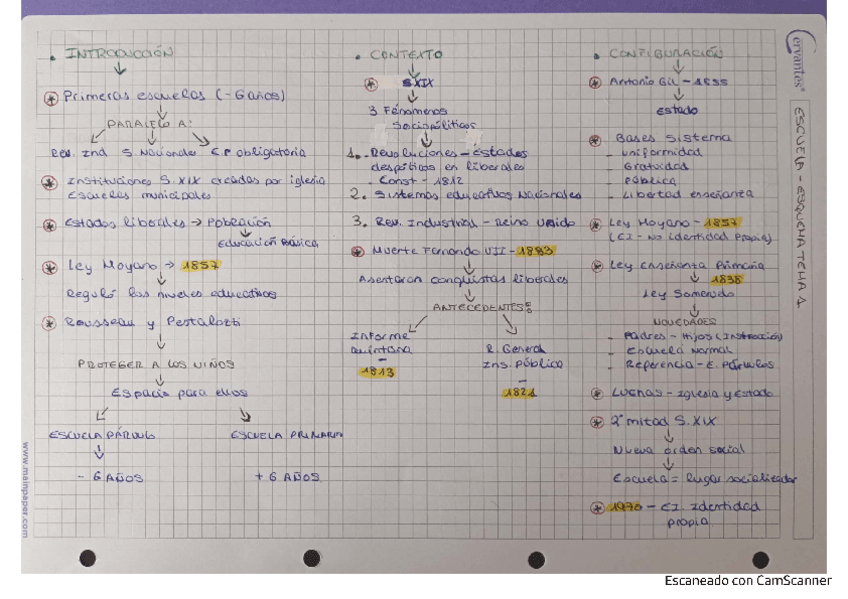 • INTRODUCCIÓN
* Primeras escuelas (-6 años)
PARALELO A:
Rev. Ind S. Nacionales E.P obligatoria
* Instituciones S.XIX creadas por iglesia
Escuelas municipales
* Estados liberales → Población
Educación Básica
* Ley Moyano → 1857
Reguló los niveles educativos
* Rousseau y Pestalozti
PROTEGER A LOS NIÑOS
Espacio para ellos
ESCUELA PÁRVULO ESCUELA PRIMARIA
- 6 AÑOS + 6 AÑOS
• CONTEXTO
* S.XIX
3 Fenómenos
Sociopolíticos
1. Revoluciones - Estados
despóticos en liberales
- Const - 1812
2. Sistemas educativos Nacionales
3. Rev. Industrial - Reino Unido
* Muerte Fernando VII - 1883
Asentaron conquistas liberales
ANTECEDENTES:
Informe
Quintana
-
1813
R. General
Ins. Público
-
1821
• CONFIGURACIÓN
* Antonio Gil - 1855
Estado
* Bases Sistema
- Uniformidad
- Gratuidad
- Pública
- Libertad enseñanza
* Ley Moyano - 1857
(EI - No identidad propia)
* Ley Enseñanza Primaria
1838
Ley Someruelo
NOVEDADES
- Padres - Hijos (Instrucción)
- Escuela Normal
- Referencia - E. Párvulos
* Luchas - Iglesia y Estado
* 2ª mitad S.XIX
Nueva orden social
Escuela = Lugar socializador
* 1970 - E.I. Identidad
propia
Cervantes
ESCUELA - ESQUEMA TEMA 1
www.mainpaper.com
Escaneado con CamScanner